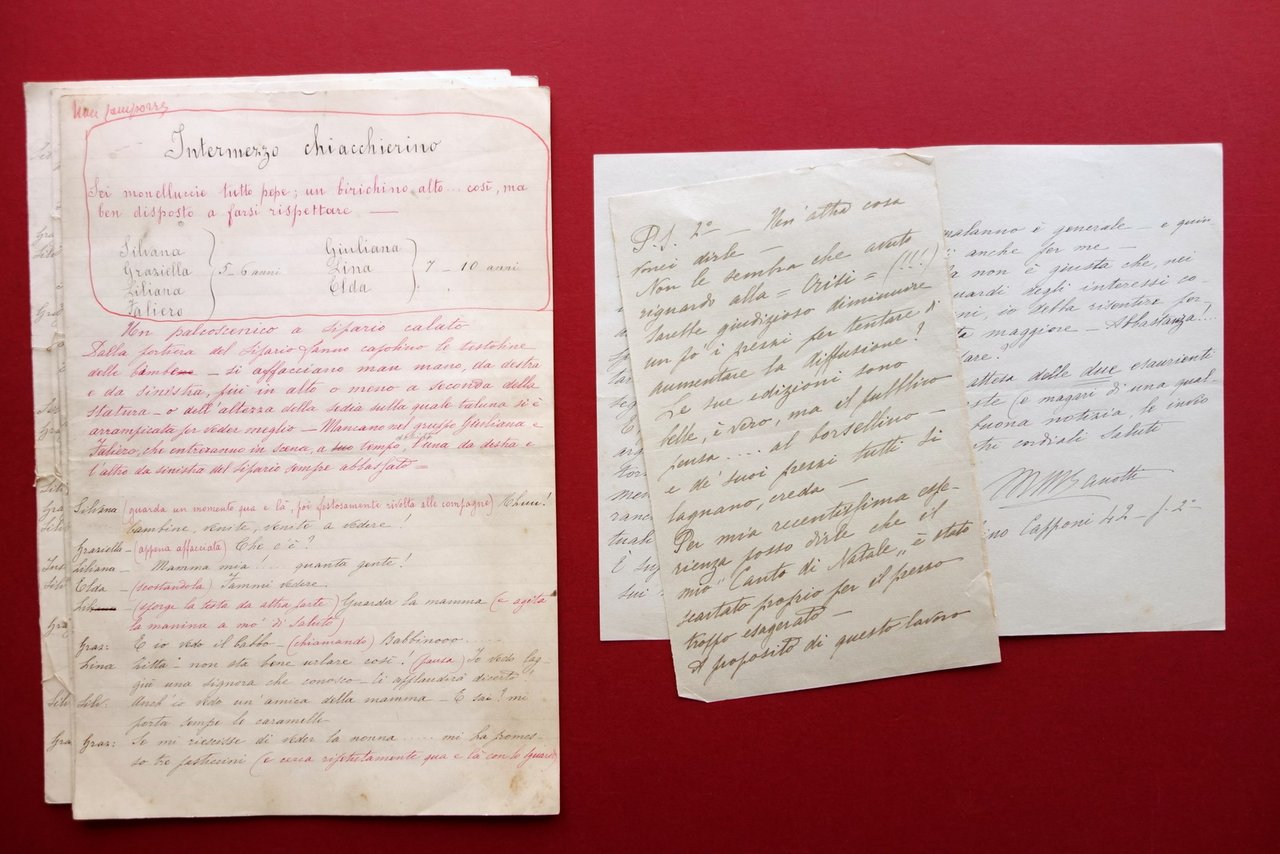 Non
Intermezzo chiacchierino
Sei monelluccie tutto pepe; un birichino alto... così, ma
ben disposto a farsi rispettare —
Silvana
Graziella
Liliana
Faliero
5 - 6 anni
Giuliana
Lina
Elda
7 - 10 anni
Un palcoscenico a sipario calato
Dalla portiera del sipario fanno capolino le testoline
delle bambe — si affacciano man mano, da destra
e da sinistra, più in alto o meno a seconda della
statura — o dell'altezza della sedia sulla quale taluna si è
arrampicata per veder meglio — Mancano nel gruppo Giuliana e
Faliero, che entreranno in scena, a suo tempo, l'una da destra e
l'altro da sinistra del sipario sempre abbassato =
Silvana (guarda un momento qua e là, poi festosamente rivolta alle compagne)
Bambine, venite, venite a vedere!
Graziella — (appena affacciata) Che c'è?
Liliana — Mamma mia!... quanta gente!
Elda — (scostandola) Fammi vedere.
(sporge la testa da altra parte) Guarda la mamma (e agita
la manina a mo' di saluto)
Graz: E io vedo il babbo — (chiamando) Babbinooo.....
Lina Zitta! non sta bene urlare così! (pausa) Io vedo lag-
giù una signora che conosco — ci applaudirà diverto!
Silv: Anch'io vedo un'amica della mamma — E sai? mi
porta sempre le caramelle
Graz: Se mi riescisse di veder la nonna..... mi ha promes-
so tre pasticcini (e cerca ripetutamente qua e là con lo sguardo)
P.S. 2º — Un'altra cosa
vorei dirle —
Non le sembra che avuto
riguardo alla = Crisi = (!!!)
sarebbe giudizioso diminuire
un po' i prezzi per tentare di
aumentare la diffusione?
Le sue edizioni sono
belle, è vero, ma il pubblico
pensa.... al borsellino —
e de' suoi prezzi tutti si
lagnano, creda —
Per mia recentissima espe-
rienza posso dirle che il
mio "Canto di Natale" è stato
scartato proprio per il prezzo
troppo esagerato —
A proposito di questo lavoro
malanno è generale — e quin-
anche per me —
non è giusta che, nei
guardi degli interessi co-
ni, io debba risentire for-
maggiore — Abbastanza!...
tare?
attesa delle due esaurienti
ste (e magari di una qual
buona notizia, le invio
cordiali saluti
no Capponi 42 - p. 2º